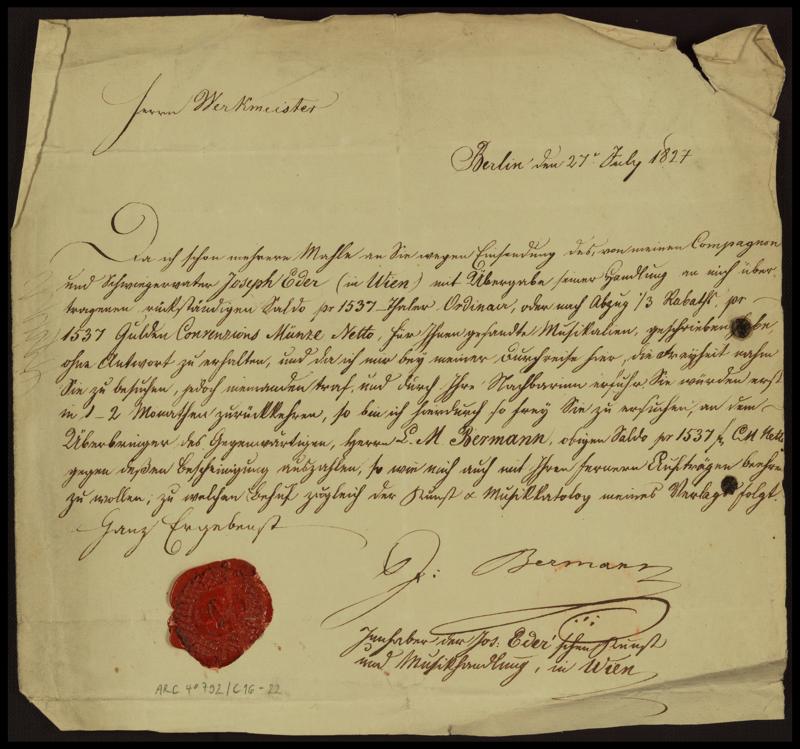 Herrn Werkmeister
Berlin den 27t July 1827
Da ich schon mehrere Mahle an Sie wegen Einsendung des, von meinen Compagnon
und Schwiegervater Joseph Eder (in Wien) mit Übergabe seiner Handlung an mich über
tragenen rückständigen Saldo pr 1537 Thaler Ordinair, oder nach Abzug 1/3 Rabatts, pr
1537 Gulden Convenzions Münze Netto, für Ihnen gesandte Musikalien, geschrieben habe,
ohne Antwort zu erhalten, und da ich nur bey meiner Durchreise hier, die Freyheit nahm
Sie zu besuchen, jedoch niemanden traf, und durch Ihre Nachbarinn erfuhr, Sie würden erst
in 1–2 Monathen zurückkehren, so bin ich hierdurch so frey Sie zu ersuchen, an dem
Überbringer des Gegenwärtigen, Herrn L. M Bermann, obigen Saldo pr 1537 f CM Netto
gegen dessen Bescheinigung auszahlen, so wie mich auch mit Ihren fernern Aufträgen beehren
zu wollen; zu welchen Behuf zugleich der Kunst & Musikkatalog meines Verlags folgt.
Ganz Ergebenst
J: Bermann
Innhaber der Jos: Eder'schen Kunst
und Musikhandlung, in Wien
ARC 4° 792/C16-22